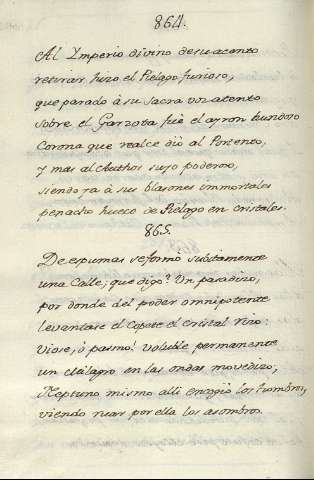 864.
Al Ymperio divino de su acento
retirar, hizo el Pielago furioso,
que parado à su Sacra voz atento
sobre el Garzota fuè el ayron hundoso
Corona que realce diò al Portento,
y mas al Authos suyo poderoso,
siendo ya à sus blasones immortales
penacho hueco de Pielago en cristales.
865.
De espumas se formò subitamente
una Calle; que digo? Un paradiso,
por donde del poder omnipotente
levantase el Copete el cristal rizo:
Viose, ò pasmo! voluble permanente
un Milagro en las ondas movedizo,
Neptuno mismo alli encogiò los hombros,
viendo ruar por ella los asombros.